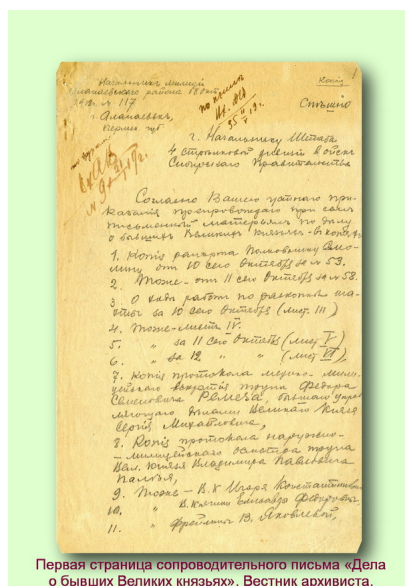 Начальник милиции
Алапаевского района 18 окт.
1918 г. № 117
г. Алапаевск,
Пермск. губ.
Копия
Спѣшно
г. Начальнику Штаба
4 стрѣлковой дивизии войск
Сибирскаго Правительства
Согласно Вашего устнаго при-
казания препровождаю при сем
письменный материал по делу
о бывших Великих князьях - в копиях
1. Копия рапорта Полковнику Смо-
лину от 10 сего Октября за № 53.
2. Тоже - от 11 сего Октября за № 58.
3. О ходе работ по раскопке ша-
хты за 10 сего Октября (лист. III)
4. Тоже - лист IV.
5. " за 11 сего Октября (лист V)
6. " за 12 " " (лист VI),
7. Копия протокола медико-мили-
цейскаго вскрытия трупа Федора
Семеновича Ремеза, бывшаго упра
вляющаго делами Великаго Князя
Сергія Михайловича,
8. Копия протокола наружно-
-милицейскаго осмотра трупа
Вел. Князя Владимира Павловича
Палѣя,
9. Тоже - В.К Игоря Константинов
10. " В. Княгини Елисаветы Федоровны
11. " Фрейлины В. Яковлевой,
Первая страница сопроводительного письма «Дела
о бывших Великих князьях». Вестник архивиста.